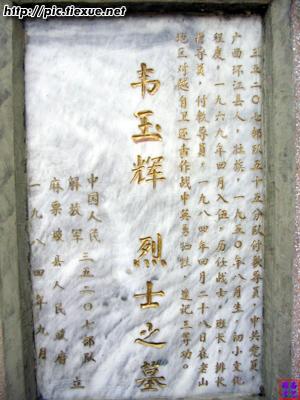 http://pic.tiexue.net/
三五二〇七部队五十五分队付教导员，中共党员，
广西环江县人，壮族，一九五〇年八月生，初小文化
程度，一九六九年四月入伍，历任战士，班长，排长，
指导员，付教导员，一九八四年四月二十八日在老山
地区对越自卫还击作战中英勇牺牲，追记三等功。
韦玉辉 烈士之墓
中国人民
解放军 三五二〇七部队
麻栗坡县人民政府 立
一九八四年九月